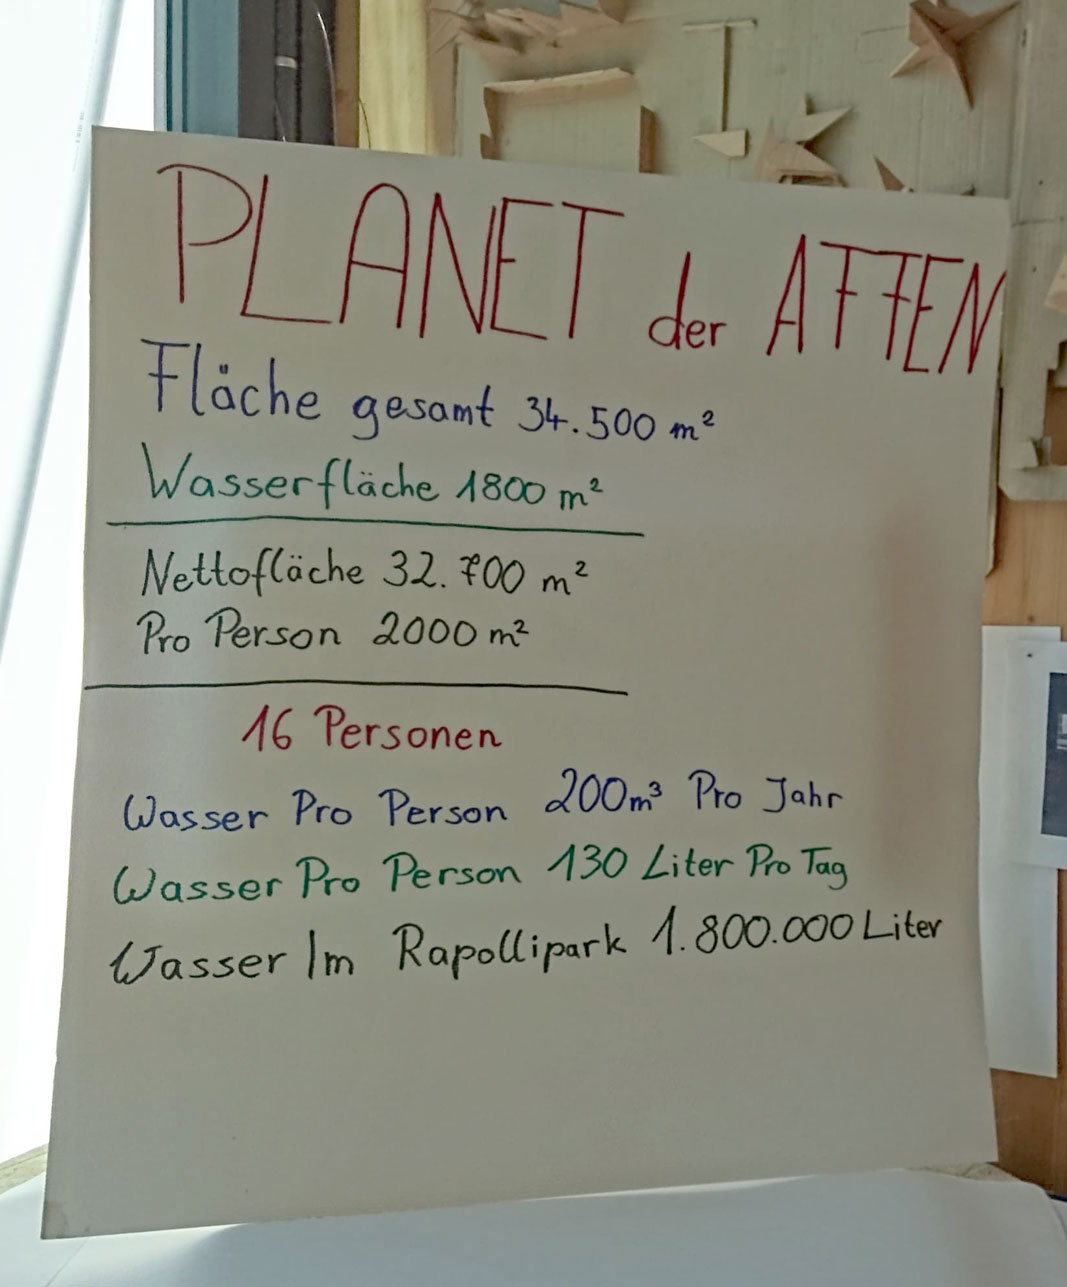 PLANET der AFFEN
Fläche gesamt 34.500 m²
Wasserfläche 1800 m²
Nettofläche 32.700 m²
Pro Person 2000 m²
16 Personen
Wasser Pro Person 200m³ Pro Jahr
Wasser Pro Person 130 Liter Pro Tag
Wasser Im Rapollipark 1.800.000 Liter